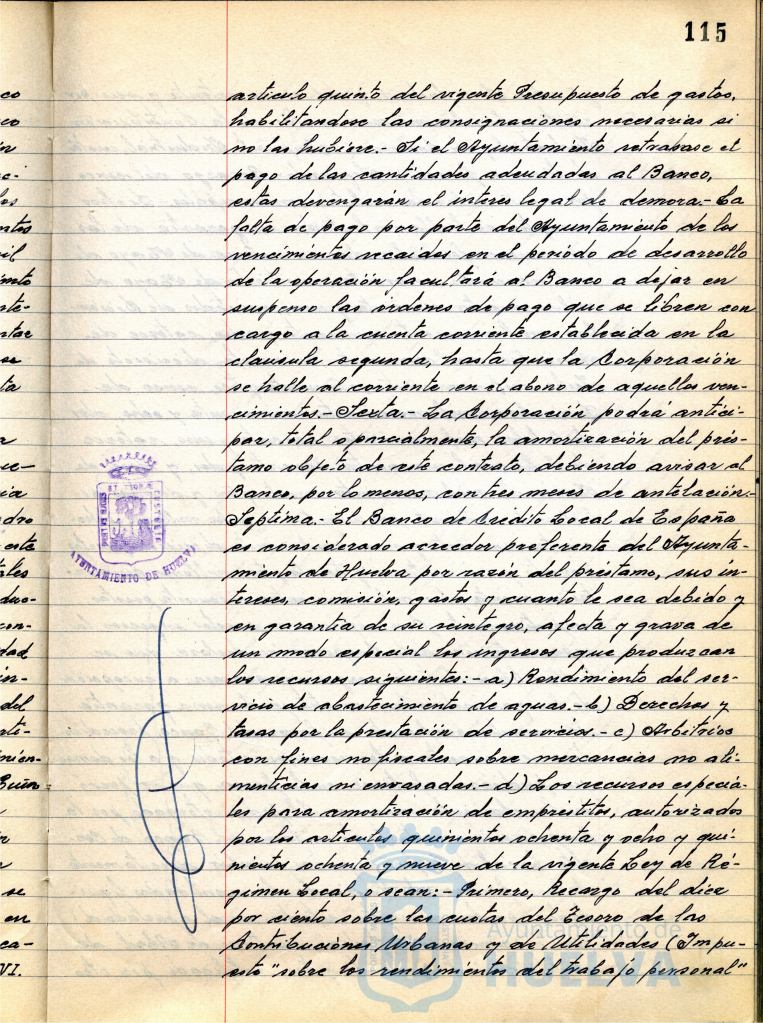 115
artículo quinto del vigente Presupuesto de gastos,
habilitandose las consignaciones necesarias si
no las hubiere.- Si el Ayuntamiento retrabase el
pago de las cantidades adeudadas al Banco,
estas devengarán el interes legal de demora.- La
falta de pago por parte del Ayuntamiento de los
vencimientos recaidos en el periódo de desarrollo
de la operación facultará al Banco a dejar en
suspenso las ordenes de pago que se libren con
cargo a la cuenta corriente establecida en la
clausula segunda, hasta que la Corporación
se halle al corriente en el abono de aquellos ven-
cimientos.- Sexta.- La Corporación podrá antici-
par, total o parcialmente, la amortización del prés-
tamo objeto de este contrato, debiendo avisar al
Banco, por lo menos, con tres meses de antelación.-
Septima.- El Banco de Crédito Local de España
es considerado acreedor preferente del Ayunta-
miento de Huelva por razón del préstamo, sus in-
tereses, comisión, gastos y cuanto le sea debido y
en garantia de su reintegro, afecta y grava de
un modo especial los ingresos que produzcan
los recursos siguientes:- a) Rendimiento del ser-
vicio de abastecimiento de aguas.- b) Derechos y
tasas por la prestación de servicios.- c) Arbitrios
con fines no fiscales sobre mercancias no ali-
menticias ni envasadas.- d) Los recursos especiá-
les para amortización de empréstitos, autorizados
por los articulos quinientos ochenta y ocho y qui-
nientos ochenta y nueve de la vigente Ley de Ré-
gimen Local, o sean:- Primero, Recargo del diez
por ciento sobre las cuotas del Tesoro de las
Contribuciónes Urbanas y de Utilidades (Impu-
esto "sobre los rendimientos del trabajo personal"
AYUNTAMIENTO DE HUELVA
Ayuntamiento de
HUELVA